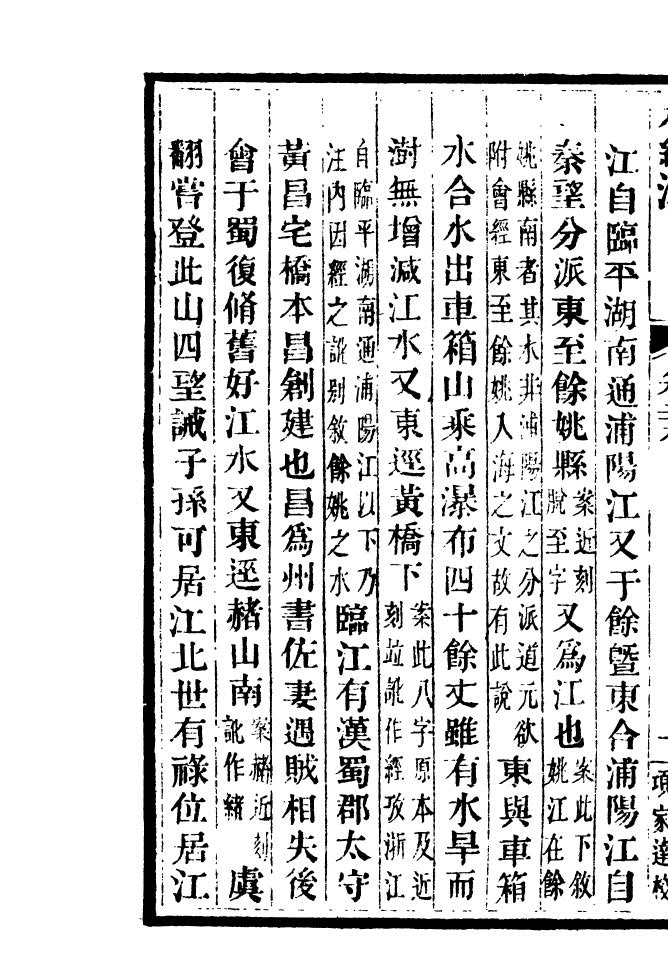 江自臨平湖南通浦陽江又于餘暨東合浦陽江自
秦望分派東至餘姚縣案近刻脫至字又爲江也案此下敘姚江在餘
姚縣南者其水非浦陽江之分派道元欲附會經東至餘姚入海之文故有此說東與車箱
水合水出車箱山乘高瀑布四十餘丈雖有水旱而
澍無增減江水又東逕黃橋下案此八字原本及近刻竝訛作經攷浙江
自臨平湖南通浦陽江以下乃注內因經之訛别敘餘姚之水臨江有漢蜀郡太守
黃昌宅橋本昌創建也昌爲州書佐妻遇賊相失後
會于蜀復脩舊好江水又東逕赭山南案赭近刻訛作緒虞
翻嘗登此山四望誡子孫可居江北世有祿位居江
項家達校